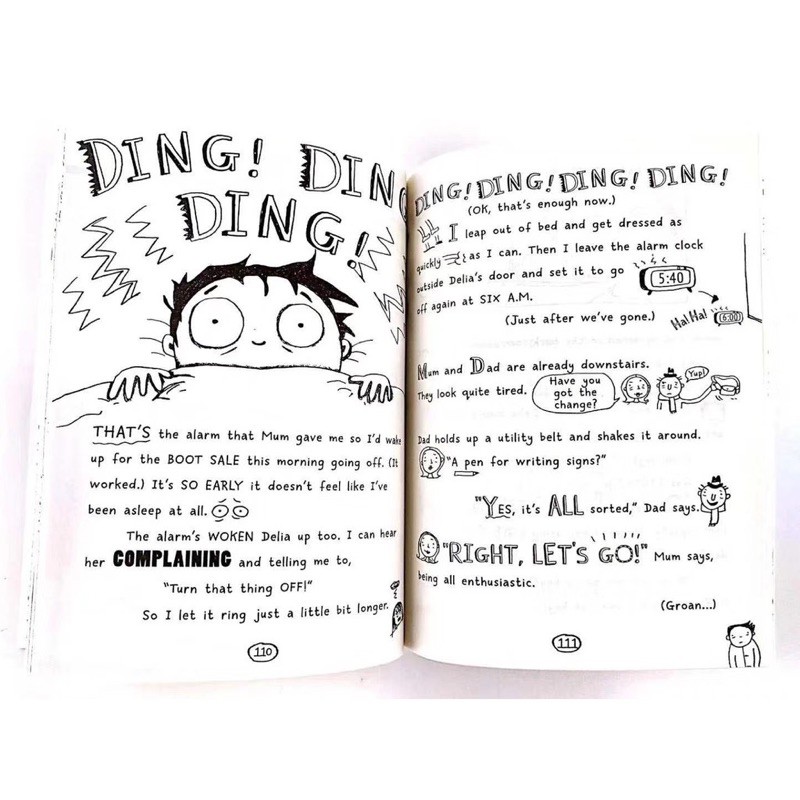 DING! DING
DING!
THAT'S the alarm that Mum gave me so I'd wake
up for the BOOT SALE this morning going off. (It
worked.) It's SO EARLY it doesn't feel like I've
been asleep at all.
The alarm's WOKEN Delia up too. I can hear
her COMPLAINING and telling me to,
"Turn that thing OFF!"
So I let it ring just a little bit longer.
110
DING! DING! DING! DING!
(OK, that's enough now.)
I leap out of bed and get dressed as
quickly as I can. Then I leave the alarm clock
outside Delia's door and set it to go
5:40
off again at SIX A.M.
Ha! Ha!
6:00
(Just after we've gone.)
Mum and Dad are already downstairs.
They look quite tired.
Have you
got the
change?
Yup!
Dad holds up a utility belt and shakes it around.
"A pen for writing signs?"
"YES, it's ALL sorted," Dad says.
"RIGHT, LET'S GO!" Mum says,
being all enthusiastic.
(Groan...)
111